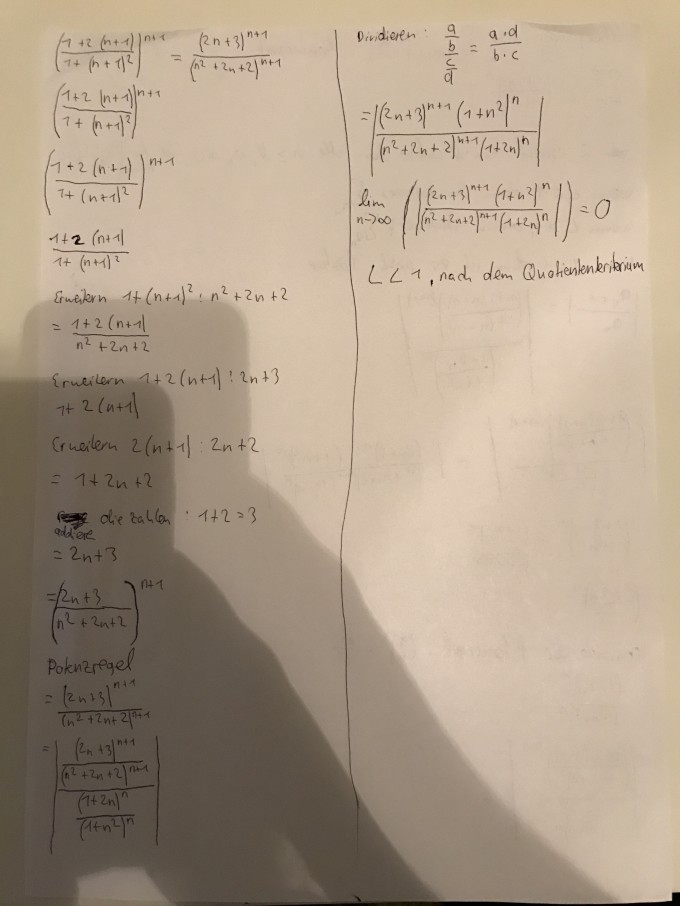 (1+2(n+1) / 1+(n+1)²)^n+1 = (2n+3)^n+1 / (n²+2n+2)^n+1
(1+2(n+1) / 1+(n+1)²)^n+1
(1+2(n+1) / 1+(n+1)²)^n+1
1+2(n+1) / 1+(n+1)²
Erweitern 1+(n+1)² : n²+2n+2
= 1+2(n+1) / n²+2n+2
Erweitern 1+2(n+1) : 2n+3
1+2(n+1)
Erweitern 2(n+1) : 2n+2
= 1+2n+2
addiere die zahlen : 1+2=3
= 2n+3
= (2n+3 / n²+2n+2)^n+1
Potenzregel
= (2n+3)^n+1 / (n²+2n+2)^n+1
= | (2n+3)^n+1 / (n²+2n+2)^n+1 / (1+2n)^n / (1+n²)^n |
Dividieren : a/b / c/d = a·d / b·c
= | (2n+3)^n+1 (1+n²)^n / (n²+2n+2)^n+1 (1+2n)^n |
lim n→∞ ( | (2n+3)^n+1 (1+n²)^n / (n²+2n+2)^n+1 (1+2n)^n | ) = 0
L < 1, nach dem Quotientenkriterium